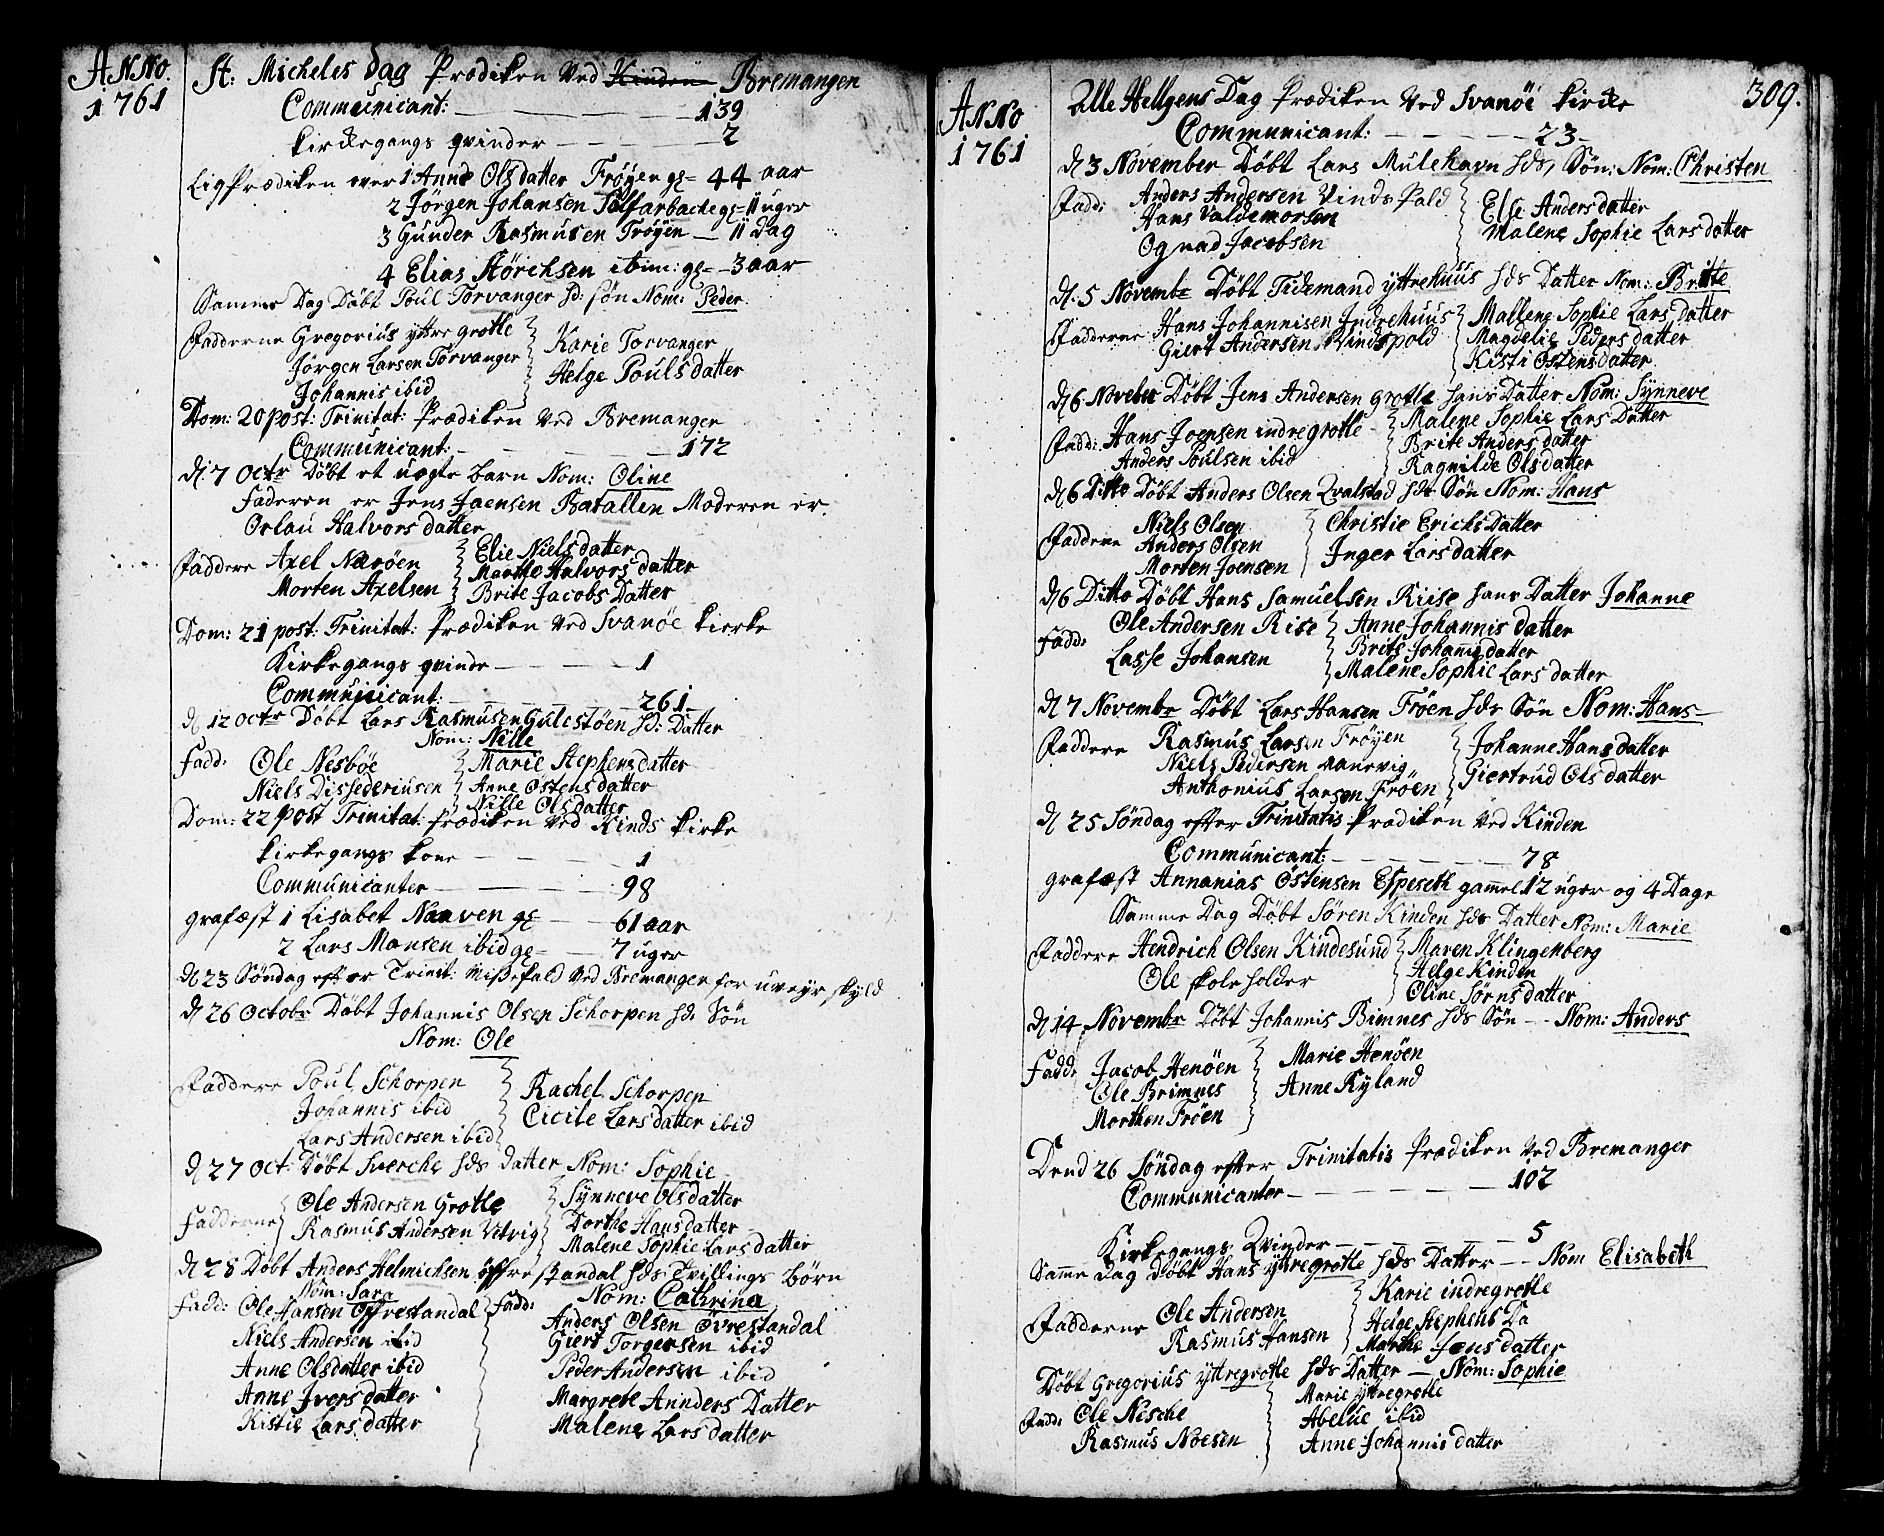 ANNo.
1761
St: Micheles Dag Prædiken Ved Kinden Bremangen
Communicant: — — — — 139
Kirckegangs qvinder — — — 2
Ligprædiken over 1 Anne Olsdatter Frøyen gl- 44 aar
2 Jörgen Johansen Kalfarbache gl= 11 uger
3 Gunder Rasmusen Frøyen — 11 Dag
4 Elias Störchsen ibim: gl- - 3 aar
Samme Dag Döbt Poul Torvanger sd: sön Nom: Peder
Fadderne Gregorius yttre grotle
Jörgen Larsen Torvanger
Johannis ibid
Karie Torvanger
Helge Poulsdatter
Dom: 20 post: Trinitat: Prædiken Ved Bremanger
Communicant: — — — — 172
d: 7 Octr Döbt et uægte barn Nom: Oline
Faderen er Jens Jaensen Batallen Moderen er
Orlau Halvorsdatter
Faddere Axel Nærøen
Morten Axelsen
Elie Nielsdatter
Marthe Halvorsdatter
Brite Jacobs Datter
Dom: 21 post: Trinitat: Prædiken Ved Svanöe Kierke
Kirkegangs qvinde — — — 1
Communicant: — — — — 261
d 12 Octr Döbt Lars Rasmusen Gulestöen sd: Datter
Nom: Nille
Fadd: Ole Nesböe
Niels Dissederiusen
Marie Stephensdatter
Anne Ostensdatter
Nille Olsdatter
Dom: 22 post Trinitat: Prædiken Ved Kinds Kirke
Kirkegangs kone — — — 1
Communicanter — — — 98
grafæst 1 Lisabet Naaven gl — 61 aar
2 Lars Mansen ibid gl- — 7 uger
d 23 Söndag efter Trinit: Missefald Ved Bremangen for uveyr skyld
d 26 Octobr Döbt Johannis Olsen Schorpen sd: Sön
Nom: Ole
Faddere Poul Schorpen
Johannis ibid
Lars Andersen ibid
Rachel Schorpen
Cicile Larsdatter ibid
d 27 Oct: Döbt Sverche sds datter Nom: Sophie
Fadderne Ole Andersen Grotle
Rasmus Andersen Vetvig
Synneve Olsdatter
Dorthe Hansdatter
Malene Sophie Larsdatter
d 28 Döbt Anders Helmichsen öffrestandal sds: Tvillings börn
Nom: Sara
Nom: Cathrina
Fadd: Ole Hansen Offrestandal
Niels Andersen ibid
Anne Olsdatter ibid
Anne Iversdatter
Kistie Larsdatter
Fadd:
Anders Olsen Övrestandal
Giert Torgersen ibid
Peder Andersen ibid
Margrete Annders Datter
Malene Larsdatter
309.
ANNo
1761
Alle Hellgens Dag Prædiken Ved Svanöe kircke
Communicant: — — — — 23
d 3 November Döbt Lars Mulehavn sds, Sön: Nom: Christen
Fadd: Anders Andersen Vindspold
Hans Valdemorsen
Ognad Jacobsen
Else Andersdatter
Malene Sophie Larsdatter
d. 5 Novembr Döbt Tidemand yttrehuus sds Datter Nom: Britte
Fadderne Hans Johannisen Indrehuus
Giert Andersen Vindspold
Mallene Sophie Larsdatter
Magdelie Pedersdatter
Kisti Ostensdatter
d 6 November Döbt Jens Andersen Grotle hans Datter Nom: Synneve
Fadd: Hans Joensen indregrotle
Anders Poulsen ibid
Malene Sophie Lars Datter
Brite Andersdatter
Ragnilde Olsdatter
d 6 Ditto Döbt Anders Olsen Qvalstad sds Sön Nom: Hans
Faddere Niels Olsen
Anders Olsen
Morten Joensen
Christie Erichs Datter
Inger Larsdatter
d 6 Ditto Döbt Hans Samuelsen Riise hans Datter Johanne
Fadd: Ole Andersen Rise
Lasse Johansen
Anne Johannis datter
Brite Johanisdatter
Malene Sophie Larsdatter
d 7 Novembr Döbt Lars Hansen Fröen sds Sön Nom: Hans
Faddere Rasmus Larsen Frøyen
Niels Pedersen Vanevig
Anthonius Larsen Fröen
Johanne Hansdatter
Giertrud Olsdatter
d 25 Söndag efter Trinitatis Prædiken Ved Kinden
Communicant: — — — — 78
grafæst Annanias Östensen Espeseth gammel 12 uger og 4 Dage
Samme Dag Döbt Sören Kinden sds Datter Nom: Marie
Faddere Hendrich Olsen Kindesund
Ole skoleholder
Maren Klingenberg
Helge Kinden
Oline Sörnsdatter
d 14 Novembr Döbt Johannis Bimnes sds Sön — Nom: Anders
Fadd: Jacob Henöen
Ole Brimnes
Morthen Fröen
Marie Henöen
Anne Ryland
Dend 26 Söndag efter Trinitatis Prædiken Ved Bremanger
Communicanter — — — — 102
Kirkegangs Qvinder — — — — 5
Samme Dag döbt Hans yttregrotle sds Datter — Nom Elisabeth
Fadderne Ole Andersen
Rasmus Hansen
Karie indregrotle
Helge Stephens Da
Marthe Jensdatter
Döbt Gregorius yttregrotle sds Datter — Nom: Sophie
Fadd: Ole Nesche
Rasmus Noesen
Marie yttregrotle
Abelue ibid
Anne Johannis datter